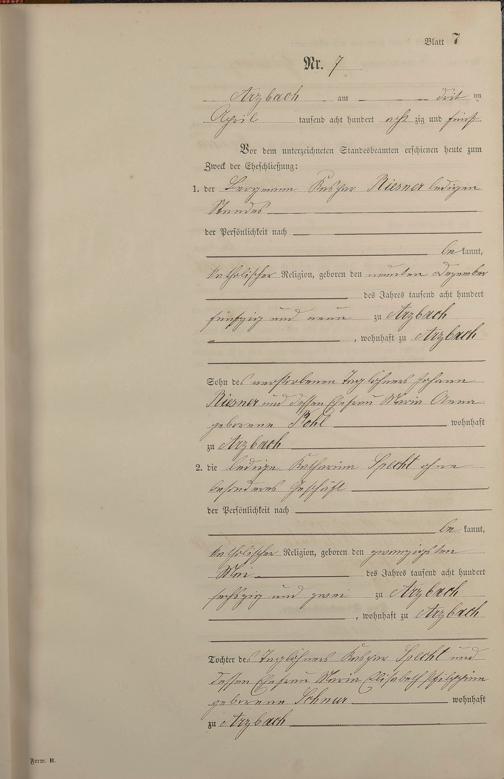 Blatt 7
Nr. 7
Arzbach am drit en
April tausend acht hundert acht zig und fünf
Vor dem unterzeichneten Standesbeamten erschienen heute zum
Zweck der Eheschließung:
1. der Bergmann Kaspar Riesner ledigen
Standes
der Persönlichkeit nach
be kannt,
katholischer Religion, geboren den neunten Dezember
des Jahres tausend acht hundert
fünfzig und neun zu Arzbach
, wohnhaft zu Arzbach
Sohn des verstorbenen Taglöhners Johann
Riesner und dessen Ehefrau Maria Anna
geborene wohnhaft
zu Arzbach
2. die ledige Katharina Specht ohne
besonderes Geschäft
der Persönlichkeit nach
be kannt,
katholischer Religion, geboren den zwanzigsten
Mai des Jahres tausend acht hundert
sechzig und zwei zu Arzbach
, wohnhaft zu Arzbach
Tochter des Taglöhners Kaspar Specht und
dessen Ehefrau Maria Elisabeth Philippine
geborene Schnur wohnhaft
zu Arzbach
Form. B.